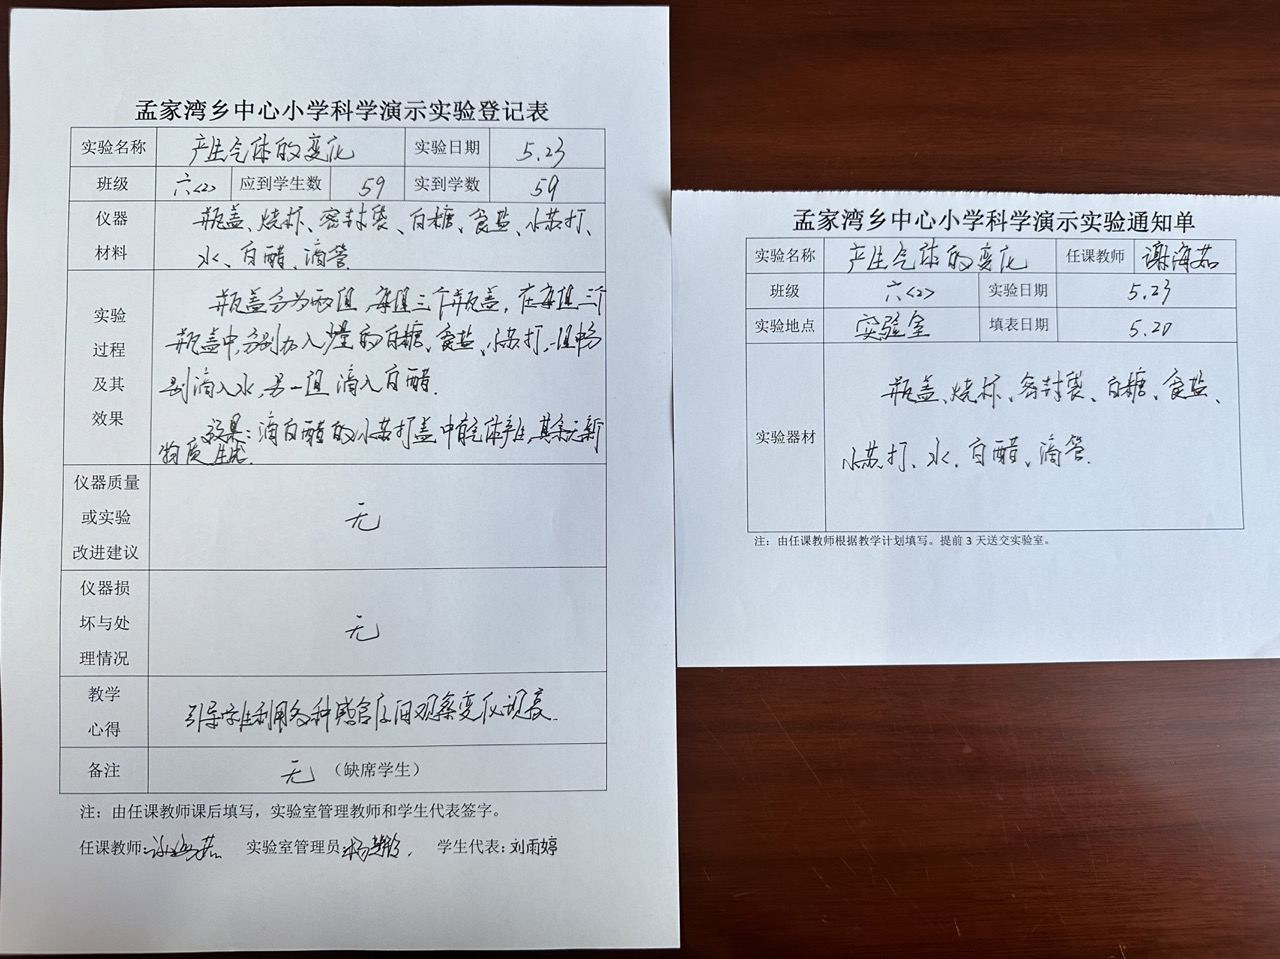 孟家湾乡中心小学科学演示实验登记表
实验名称 产生气体的变化 实验日期 5.23
班级 六<2> 应到学生数 59 实到学数 59
仪器材料 瓶盖、烧杯、密封袋、白糖、食盐、小苏打、
水、白醋、滴管
实验过程及其效果
瓶盖分为两组,每组三个瓶盖,在每组三个
瓶盖中,分别加入少量的白糖、食盐、小苏打,一组
别滴入水,另一组滴入白醋.
效果:滴白醋的小苏打盖中有气体产生,其余无新
物质生成.
仪器质量或实验改进建议 无
仪器损坏与处理情况 无
教学心得 引导学生利用各种感官观察变化现象.
备注 无 (缺席学生)
注:由任课教师课后填写,实验室管理教师和学生代表签字。
任课教师: 谢海茹 实验室管理员: 学生代表: 刘雨婷
孟家湾乡中心小学科学演示实验通知单
实验名称 产生气体的变化 任课教师 谢海茹
班级 六<2> 实验日期 5.23
实验地点 实验室 填表日期 5.20
实验器材 瓶盖、烧杯、密封袋、白糖、食盐、
小苏打、水、白醋、滴管.
注:由任课教师根据教学计划填写。提前 3 天送交实验室。